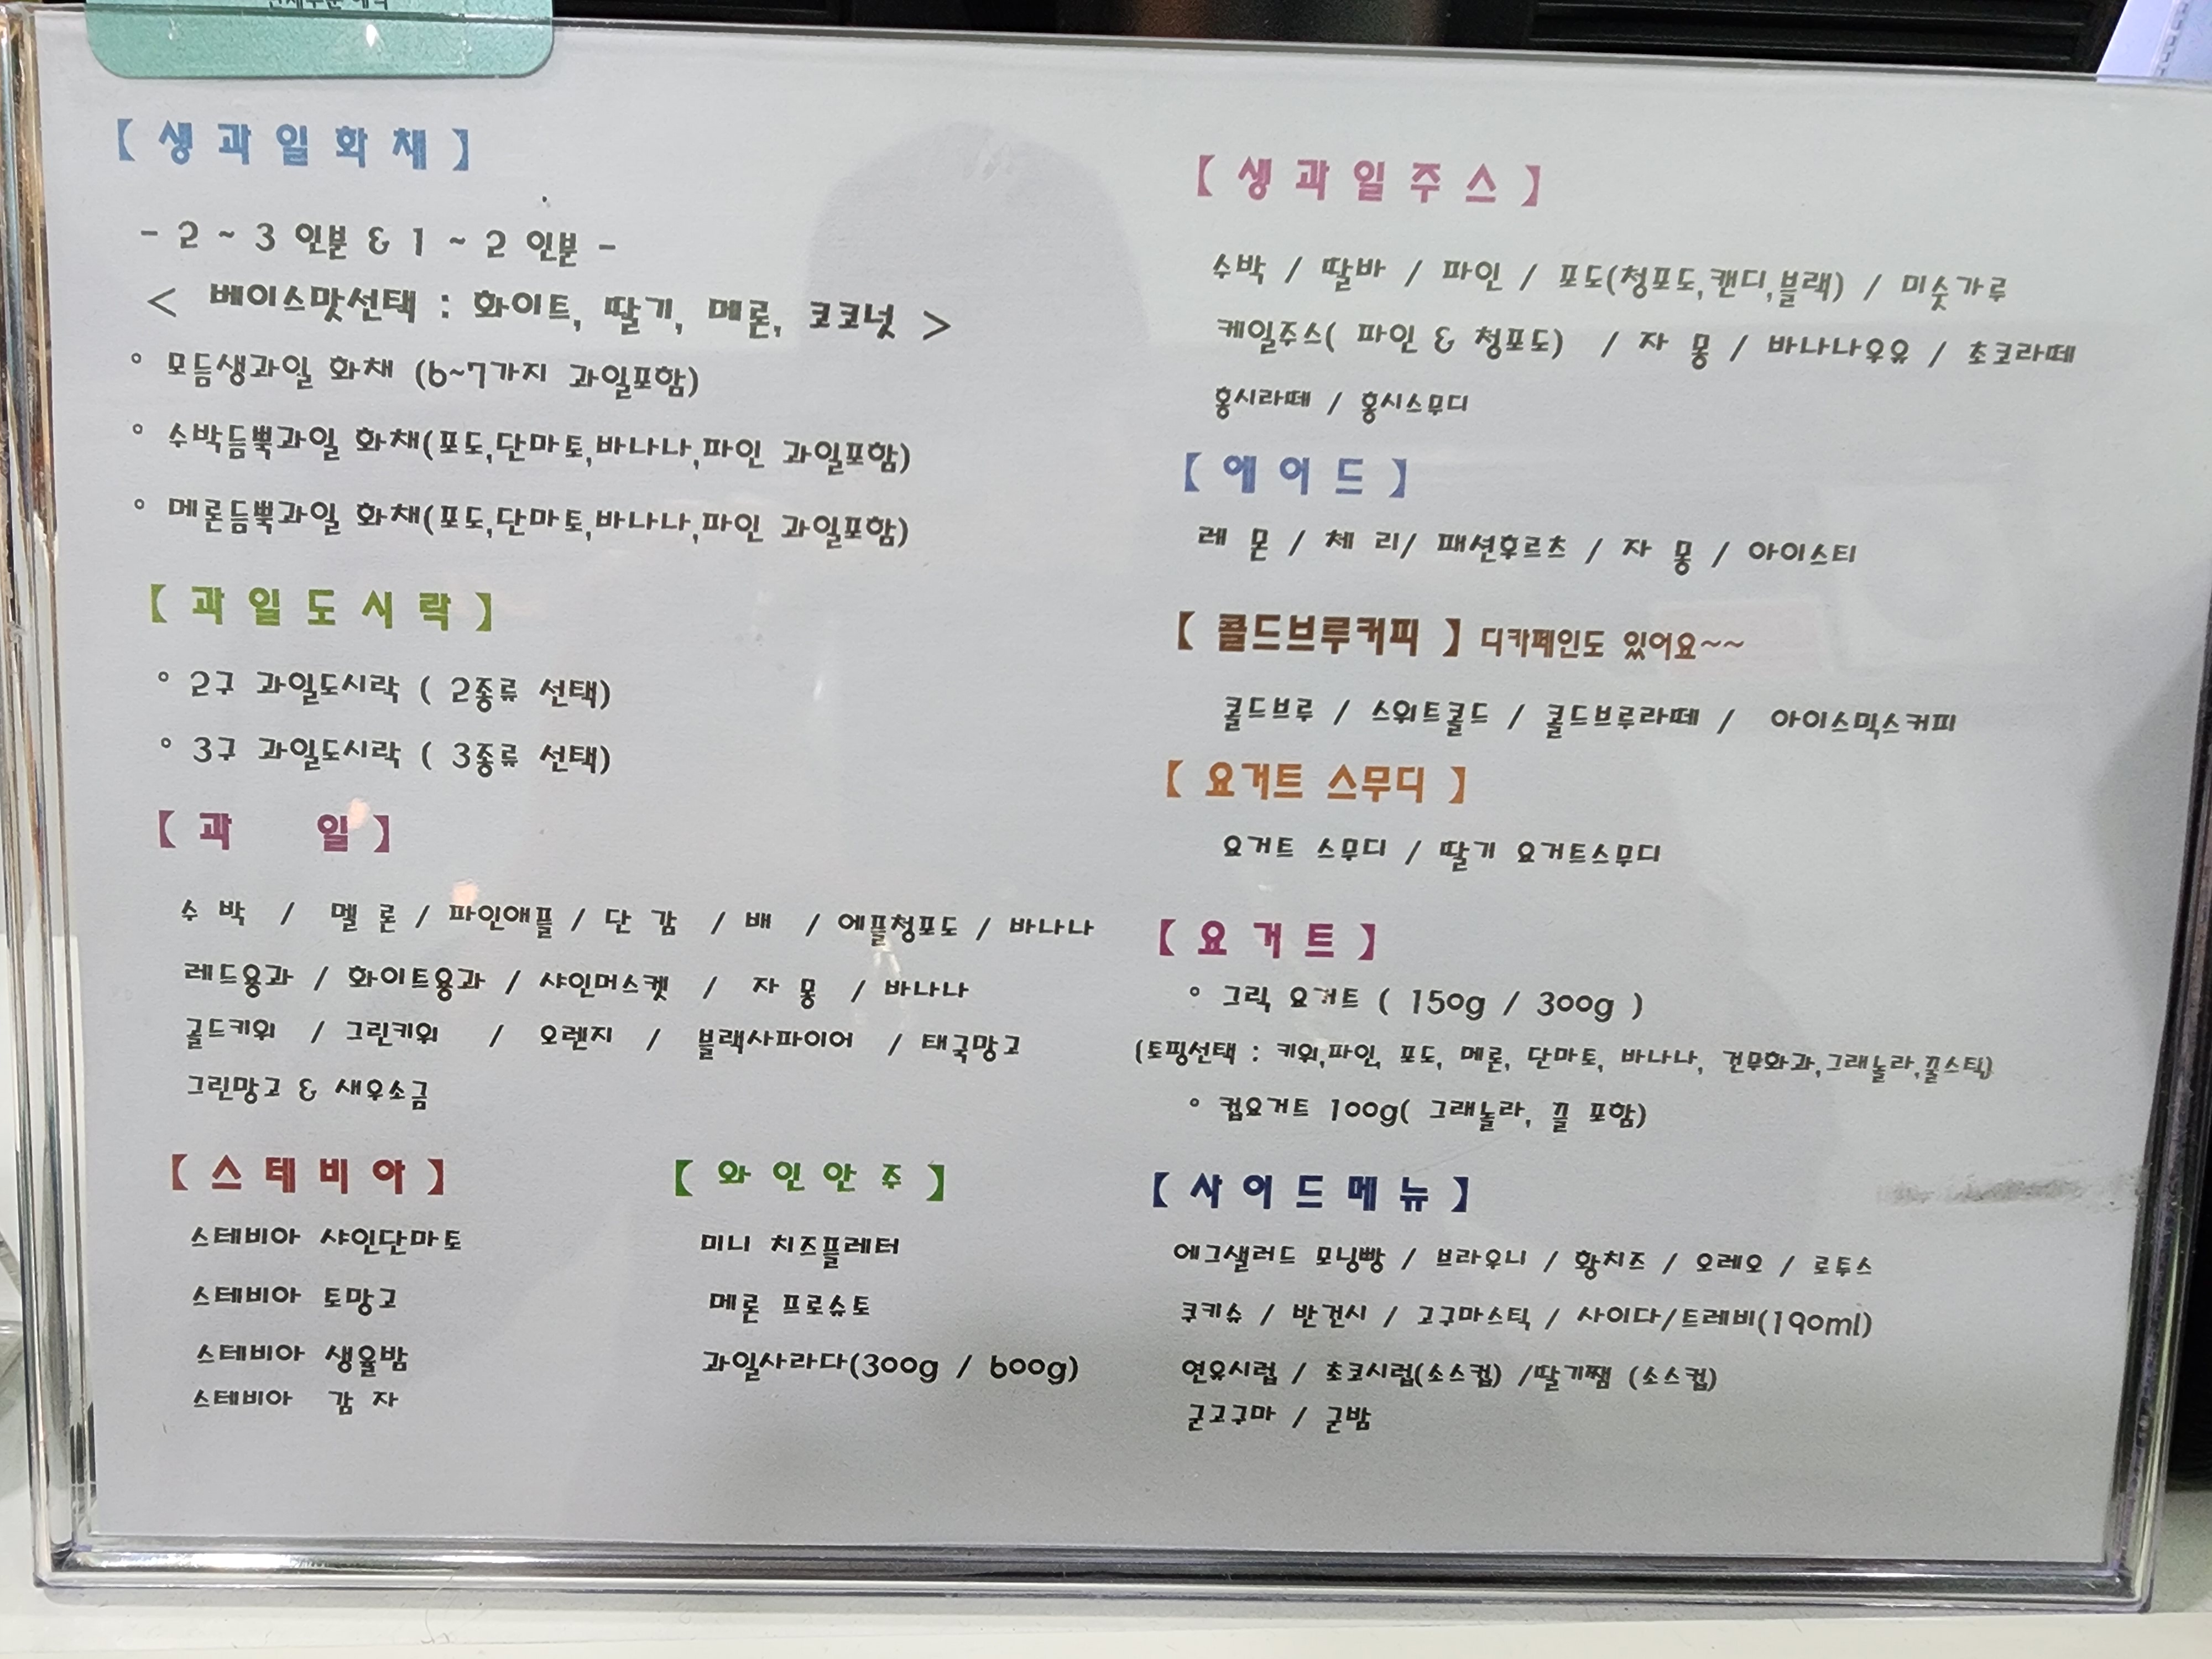 【 생 과 일 화 채 】
- 2 ~ 3 인분 & 1 ~ 2 인분 -
< 베이스맛선택 : 화이트, 딸기, 메론, 코코넛 >
° 모듬생과일 화채 (6~7가지 과일포함)
° 수박듬뿍과일 화채(포도,단마토,바나나,파인 과일포함)
° 메론듬뿍과일 화채(포도,단마토,바나나,파인 과일포함)
【 과 일 도 시 락 】
° 2구 과일도시락 ( 2종류 선택)
° 3구 과일도시락 ( 3종류 선택)
【 과 일 】
수 박 / 멜 론 / 파인애플 / 단 감 / 배 / 에플청포도 / 바나나
레드용과 / 화이트용과 / 샤인머스켓 / 자 몽 / 바나나
골드키위 / 그린키위 / 오렌지 / 블랙사파이어 / 태국망고
그린망고 & 새우소금
【 스 테 비 아 】
스테비아 샤인단마토
스테비아 토망고
스테비아 생율밤
스테비아 감 자
【 와 인 안 주 】
미니 치즈플레터
메론 프로슈토
과일사라다(300g / 600g)
【 생 과 일 주 스 】
수박 / 딸바 / 파인 / 포도(청포도,캔디,블랙) / 미숫가루
케일주스( 파인 & 청포도) / 자 몽 / 바나나우유 / 초코라떼
홍시라떼 / 홍시스무디
【 에 이 드 】
레 몬 / 체 리/ 패션후르츠 / 자 몽 / 아이스티
【 콜드브루커피 】 디카페인도 있어요~~
콜드브루 / 스위트콜드 / 콜드브루라떼 / 아이스믹스커피
【 요거트 스무디 】
요거트 스무디 / 딸기 요거트스무디
【 요 거 트 】
° 그릭 요거트 ( 150g / 300g )
(토핑선택 : 키위,파인, 포도, 메론, 단마토, 바나나, 건무화과,그래놀라,꿀스틱)
° 컵요거트 100g( 그래놀라, 꿀 포함)
【 사 이 드 메 뉴 】
에그샐러드 모닝빵 / 브라우니 / 황치즈 / 오레오 / 로투스
쿠키슈 / 반건시 / 고구마스틱 / 사이다/트레비(190ml)
연유시럽 / 초코시럽(소스컵) /딸기쨈 (소스컵)
군고구마 / 군밤